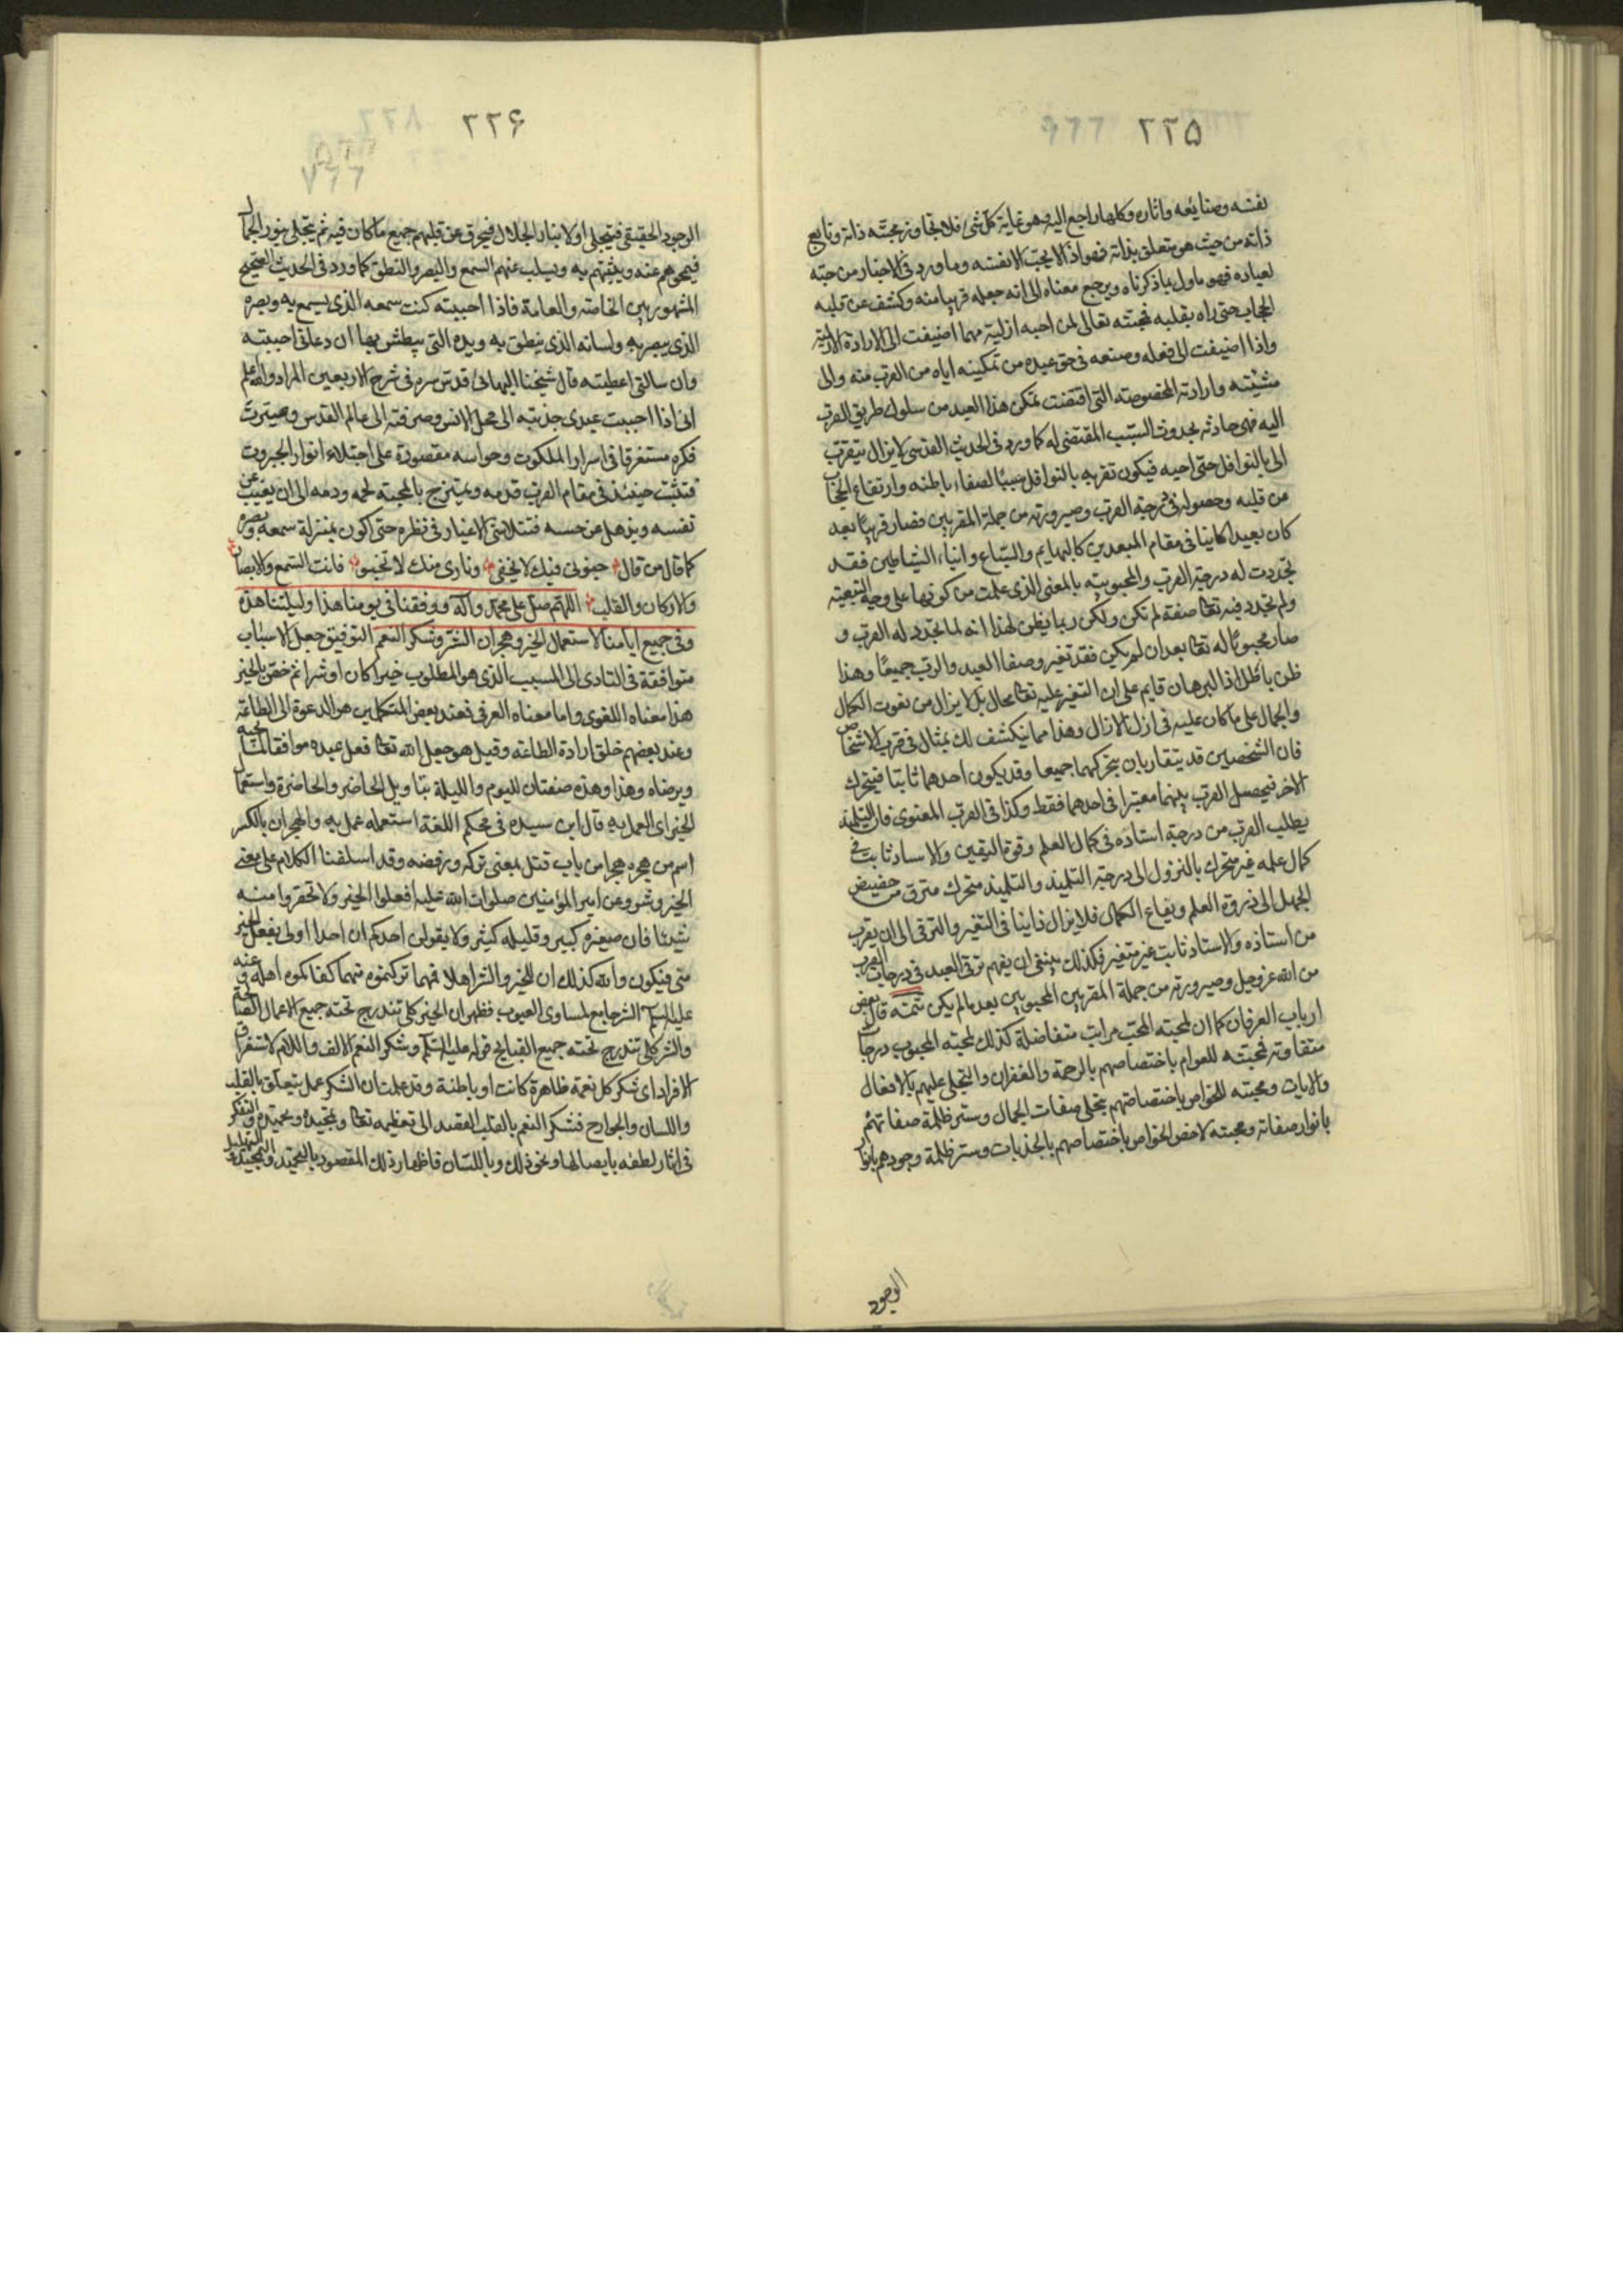 ٢٢۵
نفسه وصنايعه واثاره وكلها راجع اليه وهو غاية كل شئ فلا تجاوز محبته ذاته وتابع
ذاته من حيث هو متعلق بذاته فهو اذا لا يحب الا نفسه وما ورد فى الاخبار من حبه
لعباده فهو ماول بما ذكرناه ويرجع معناه الى انه جعله قريبا منه وكشف عن قلبه
الحجاب حتى راه بقلبه فمحبته تعالى لمن احبه ازلية مهما اضيفت الى الارادة الازلية
واذا اضيفت الى فعله وصنعه فى حق عبده من تمكينه اياه من القرب منه والى
مشيته وارادته المخصوصة التى اقتضت تمكن هذا العبد من سلوك طريق القرب
اليه فهى حادثه بحدوث السبب المقتضى له كما ورد فى الحديث القدسى لا يزال يتقرب
الى بالنوافل حتى احبه فيكون تقربه بالنوافل سببا لصفاء باطنه وارتفاع الحجاب
من قلبه وحصوله فى درجة القرب وصيرورته من جملة المقربين فصار قريبا بعد
كان بعيدا كاينا فى مقام المبعدين كالبهايم والسباع وابناء الشياطين فقد
تجددت له درجة القرب والمحبوبيه بالمعنى الذى علمت من كونها على وجه التبعية
ولم تجدد فيه تعا صفة لم تكن ولكن ربما يظن لهذا انه لما تجدد له القرب و
صار محبوبا له تعا بعد ان لم يكن فقد تغير وصفا العبد والرب جميعا وهذا
ظن باطل اذا البرهان قايم على ان التغير عليه تعا محال بل لا يزال من نعوت الكمال
والجمال على ما كان عليه فى ازل الازال وهذا مما ينكشف لك بمثال فى قرب الاشخاص
فان الشخصين قد يتقاربان بتحركهما جميعا وقد يكون احدهما ثابتا فيتحرك
الاخر فيحصل القرب بينهما معتبرا فى احدهما فقط وكذا فى القرب المعنوى فان التلميذ
يطلب القرب من درجة استاذه فى كمال العلم وقوة اليقين والاستاذ ثابت فى
كمال علمه غير متحرك بالنزول الى درجة التلميذ والتلميذ متحرك مترق من حضيض
الجهل الى ذروة العلم ويفاع الكمال فلا يزال دايبا فى التغير والترقى الى ان يقرب
من استاذه والاستاذ ثابت غير متغير فكذلك ينبغى ان يفهم ترقى العبد فى درجات القرب
من الله عز وجل وصيرورته من جملة المقربين المحبوبين بعد ما لم يكن تتمه قال بعض
ارباب العرفان كما ان لمحبته المحب مراتب متفاضلة كذلك لمحبته المحبوب درجات
متفاوتة فمحبته للعوام باختصاصهم بالرحمة والغفران والتجلى عليهم بالافعال
والايات ومحبته للخواص باختصاصهم بتجلى صفات الجمال وستر ظلمة صفاتهم
بانوار صفاته ومحبته لاخص الخواص باختصاصهم بالجذبات وستر ظلمة وجودهم بانوار
الوجود
٢٢۶
الوجود الحقيقى فيتجلى اولا بنار الجلال فيحرق عن قلبهم جميع ما كان فيه ثم يتجلى بنور الجمال
فيمحوهم عنه ويثبتهم به ويسلب عنهم السمع والبصر والنطق كما ورد فى الحديث الصحيح
المشهور بين الخاصة والعامة فاذا احببته كنت سمعه الذى يسمع به وبصره
الذى يبصر به ولسانه الذى ينطق به ويده التى يبطش بها ان دعانى احببته
وان سالنى اعطيته قال شيخنا البهائى قدس سره فى شرح الاربعين المراد والله اعلم
انى اذا احببت عبدى جذبته الى محل الانس وصرفته الى عالم القدس وصيرت
فكره مستغرقا فى اسرار الملكوت وحواسه مقصورة على اجتلاء انوار الجبروت
فتثبت حينئذ فى مقام القرب قدمه ويمتزج بالمحبة لحمه ودمه الى ان يغيب عن
نفسه ويذهل عن حسه فتتلاشى الاغيار فى نظره حتى اكون بمنزلة سمعه وبصره
كما قال من قال جنونى فيك لا يخفى ونارى منك لا تخبو فانت السمع والابصار
والاركان والقلب اللهم صل على محمد وآله ووفقنا فى يومنا هذا وليلتنا هذه
وفى جميع ايامنا لاستعمال الخير وهجران الشر وشكر النعم التوفيق جعل الاسباب
متوافقة فى التادى الى المسبب الذى هو المطلوب خيرا كان او شرا ثم خص بالخير
هذا معناه اللغوى واما معناه العرفى فعند بعض المتكلمين هو الدعوة الى الطاعة
وعند بعضهم خلق ارادة الطاعه وقيل هو جعل الله تعا فعل عبده موافقا لما يحبه
ويرضاه وهذا وهذه صفتان لليوم والليلة بتاويل الحاضر والحاضرة واستعمال
الخير اى العمل به قال ابن سيده فى محكم اللغة استعمله عمل به والهجران بالكسر
اسم من هجره هجرا من باب قتل بمعنى تركه ورفضه وقد اسلفنا الكلام على معنى
الخير وشر وعن امير المؤمنين صلوات الله عليه افعلوا الخير ولا تحقروا منه
شيئا فان صغيره كبير وقليله كثير ولا يقولن احدكم ان احدا اولى بفعل الخير
منى فيكون والله كذلك ان للخير والشر اهلا فمهما تركتموه منهما كفاكموه اهله وعنه
عليه السلام الشر جامع لمساوى العيوب فظهر ان الخير كلى تندرج تحته جميع الاعمال الصالحة
والشر كلى تندرج تحته جميع القبايح قوله عليه السلام وشكر النعم الالف واللام لاستغراق
الافراد اى شكر كل نعمة ظاهرة كانت او باطنة وقد علمت ان الشكر عمل يتعلق بالقلب
واللسان والجوارح فشكر النعم بالقلب القصد الى تعظيمه تعا وتمجيده وتحميده والتفكر
فى اثار لطفه بايصالها ونحو ذلك وباللسان فاظهار ذلك المقصود بالتحميد والتمجيد والتهليل